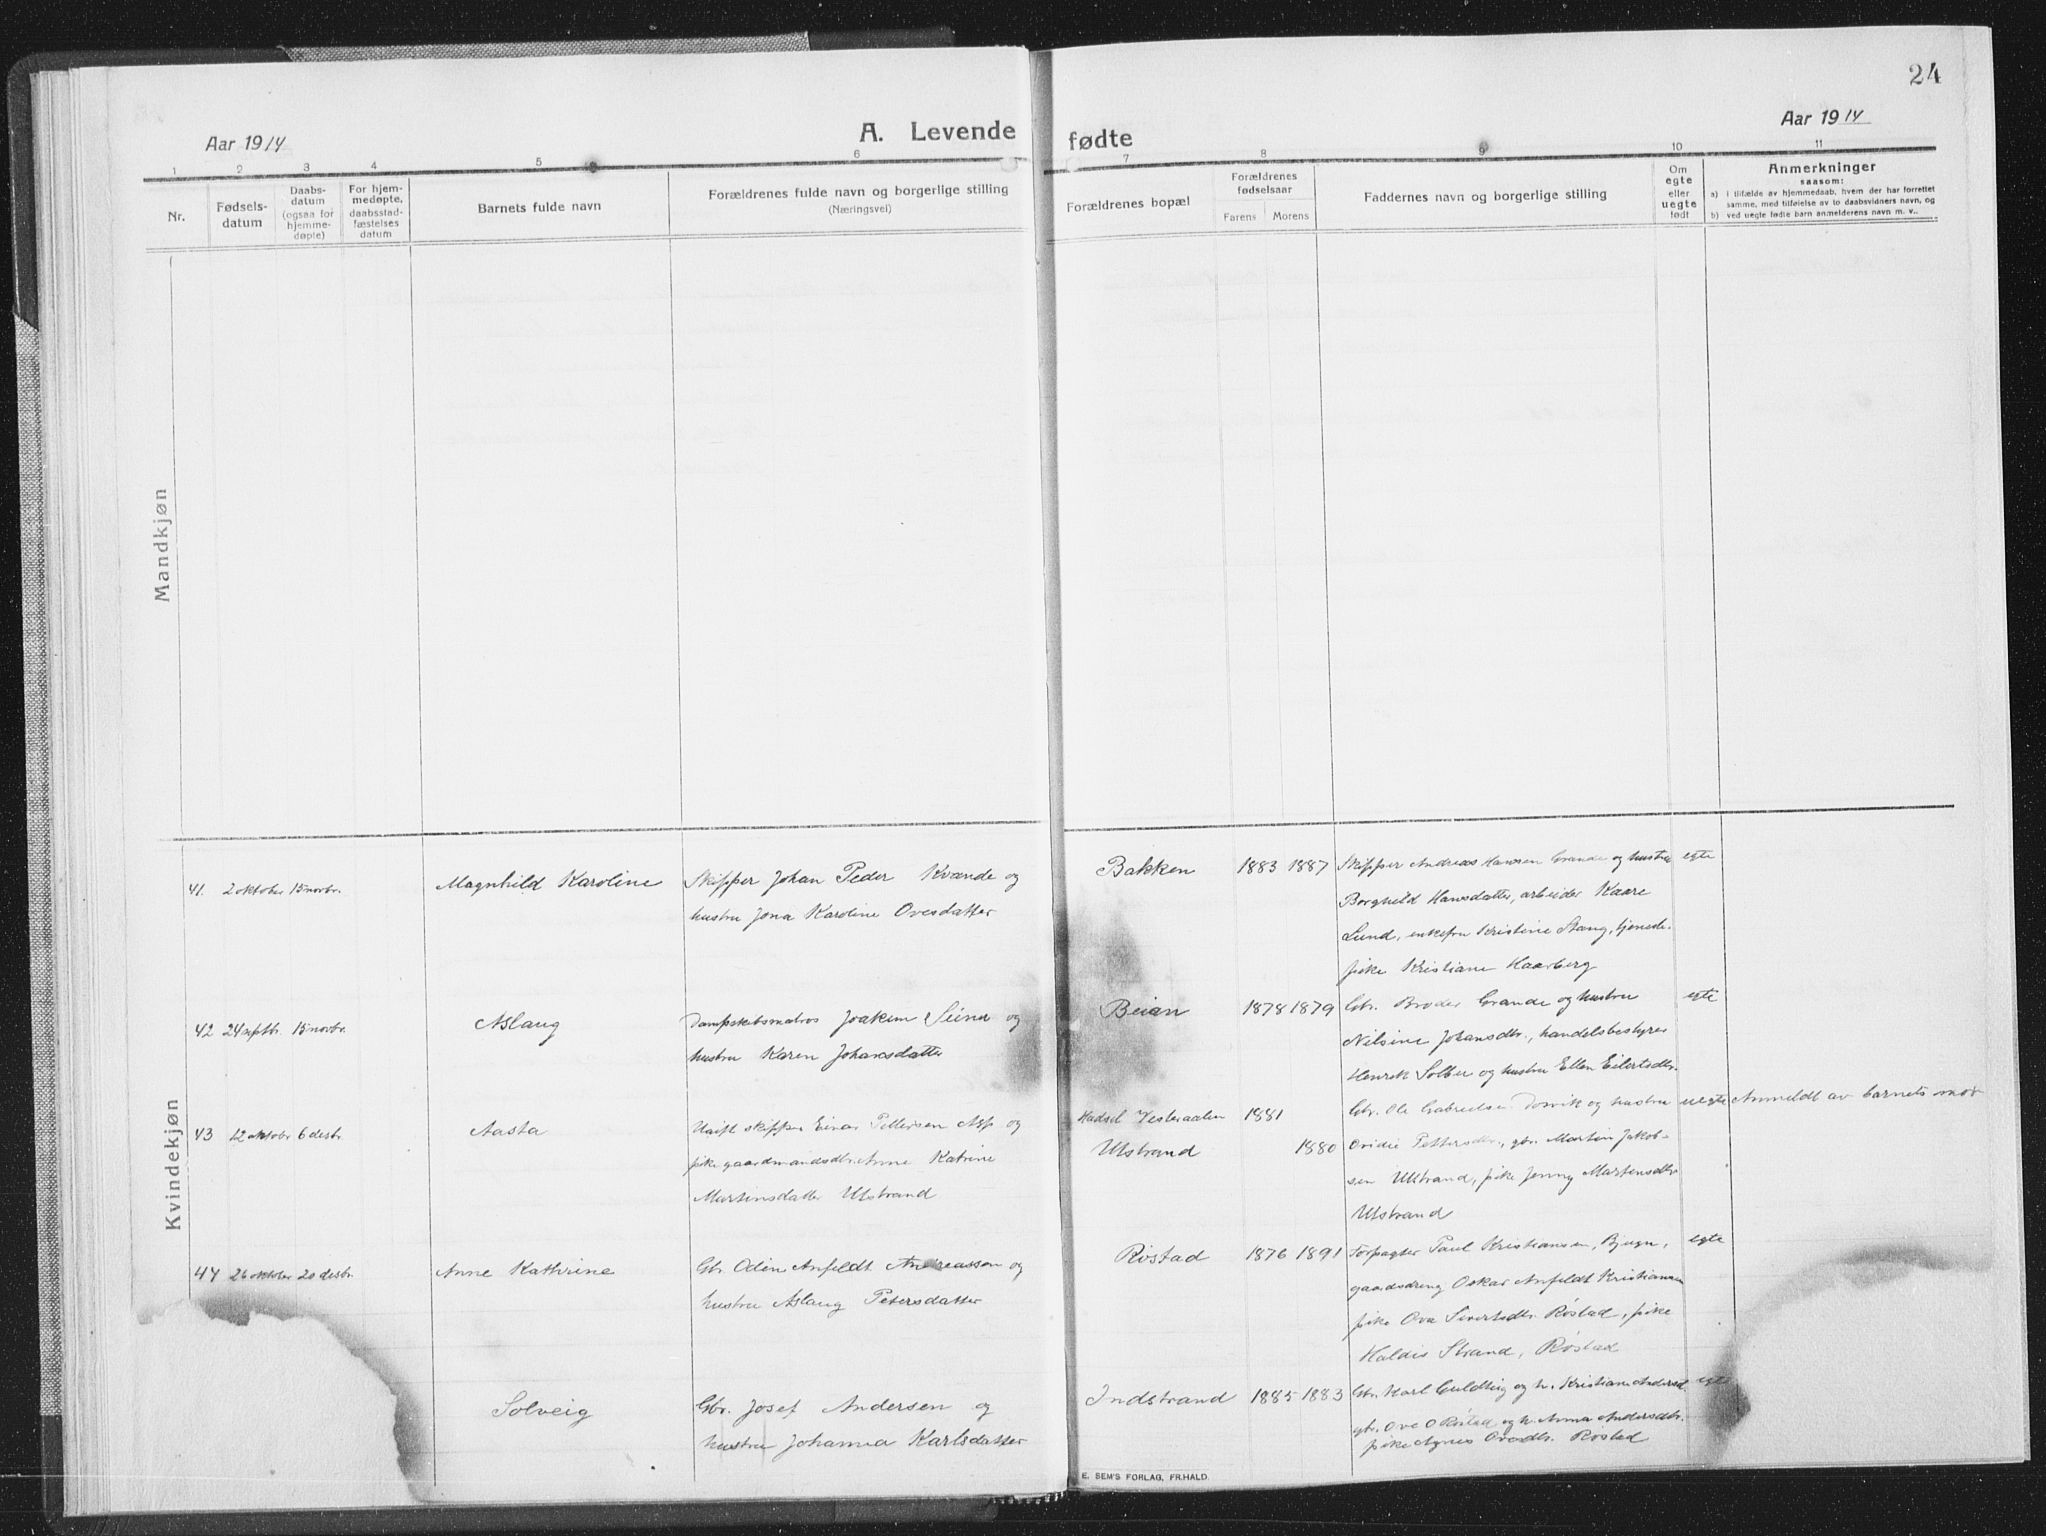 24
Aar 1914
A. Levende
fødte
Aar 1914
1 2 3 4 5 6 7 8 9 10 11
Nr.
Fødsels-
datum
Daabs-
datum
(ogsaa for
hjemme-
døpte)
For hjem-
medøpte,
daabsstad-
fæstelses
datum
Barnets fulde navn
Forældrenes fulde navn og borgerlige stilling
(Næringsvei)
Forældrenes bopæl
Forældrenes
fødselsaar
Farens Morens
Faddernes navn og borgerlige stilling
Om
egte
eller
uegte
født
Anmerkninger
saasom:
a) i tilfælde av hjemmedaab, hvem der har forrettet
samme, med tilføielse av to daabsvidners navn, og
b) ved uegte fødte barn anmelderens navn m. v..
Mandkjøn
Kvindekjøn
41. 2 oktober 15 novbr. Magnhild Karoline
Skipper Johan Peder Kvande og
hustru Jona Karoline Ovesdatter
Bakken 1883 1887
Skipper Andreas Hansen Grande og hustru
Borghild Hansdatter, arbeider Kaare
Lund, enkefru Kristine Stang, tjeneste-
pike Kristiane Haarberg
egte
42 24 septbr. 15 novbr. Aslaug
Dampskibsmatros Joakim og
hustru Karen Johansdatter
Beian 1878 1879
Gbr. Broder Grande og hustru
Nilsine Johansdtr., handelsbestyrer
Henrik Solber og hustru Ellen Eilertsdtr.
egte
43 12 oktobr 6 desbr. Aasta
Ugift skipper Einar Pettersen Asp og
pike gaardmandsdtr. Anne Katrine
Martinsdatter Ulstrand
Hadsel Vesteraalen 1881
Ulstrand 1880
Gbr. Ole Gabrielsen og hustru
Ovidie Pettersdtr., gbr. Martin Jakob-
sen Ulstrand, pike Jenny Martensdtr
Ulstrand
uegte Anmeldt av barnets mor
44 26 oktober 20 desbr. Anne Kathrine
Gbr. Odin Anfeldt Andreassen og
hustru Aslaug Petersdatter
Røstad 1876 1891
Forpagter Paul Kristiansen, Bjugn,
gaardsdreng Oskar Anfeldt Kristiansen
pike Ova Sivertsdtr. Røstad, pike
Haldis Strand, Røstad
egte
Solveig
Gbr. Josef Andersen og
hustru Johanna Karlsdatter
Indstrand 1885 1883
Gbr. Karl Guldteig og h. Kristiane Andersd.
gbr. Ove O Røstad og h. Anna Andersdtr.
pike Agnes Ovesdtr. Røstad
egte
E. SEM'S FORLAG, FR.HALD.